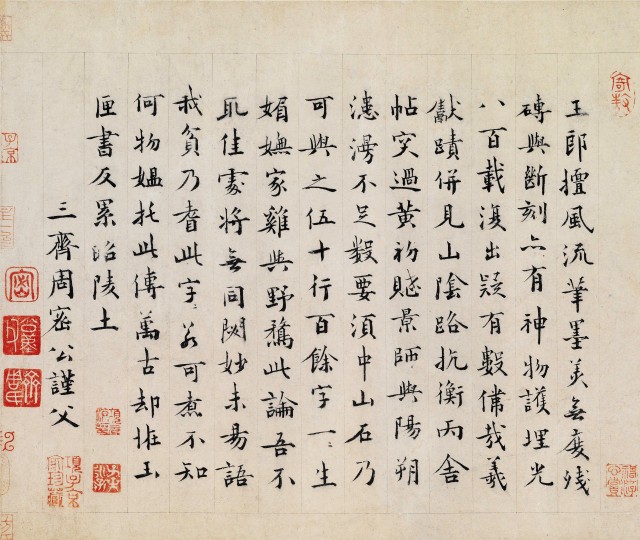 王郎擅風流筆墨美無度殘
磚與斷刻亦有神物護埋光
八百載復出疑有數哉羲
獻蹟併見山陰路抗衡丙舍
帖突過黃初賦景師與陽朔
漶漫不足數要須中山石乃
可與之伍十行百餘字一一生
媚嫵家雞與野鶩此論吾不
取佳處將無同闕妙未易語
我貧乃耆此字〻若可煮不知
何物媼托此傳萬古却恠玉
匣書反累昭陵土
三齊周密公謹父
項子京家珍藏